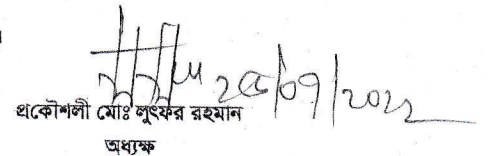 ২৫/০৭/২০২২
প্রকৌশলী মোঃ লুৎফর রহমান
অধ্যক্ষ